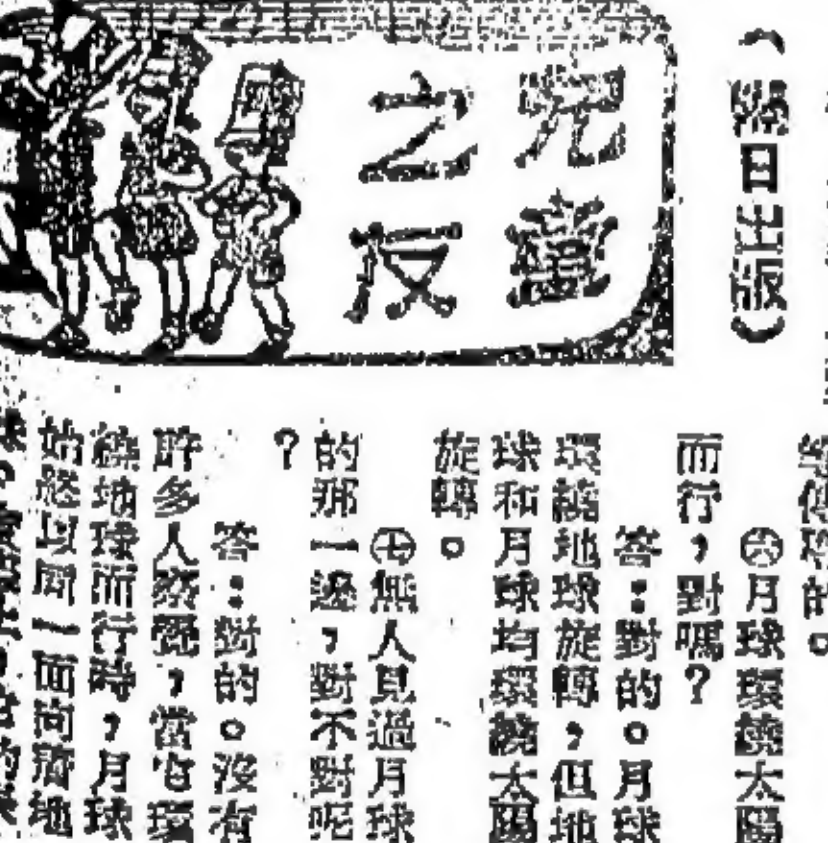 （隔日出版）
兒童
之友
㈥月球環繞太陽
而行，對嗎？
答：對的。月球
環繞地球旋轉，但地
球和月球均環繞太陽
旋轉。
㈦無人見過月球
的那一邊，對不對呢
？
答：對的。沒有
許多人察覺，當它環
繞地球而行時，月球
始終以同一面向着地